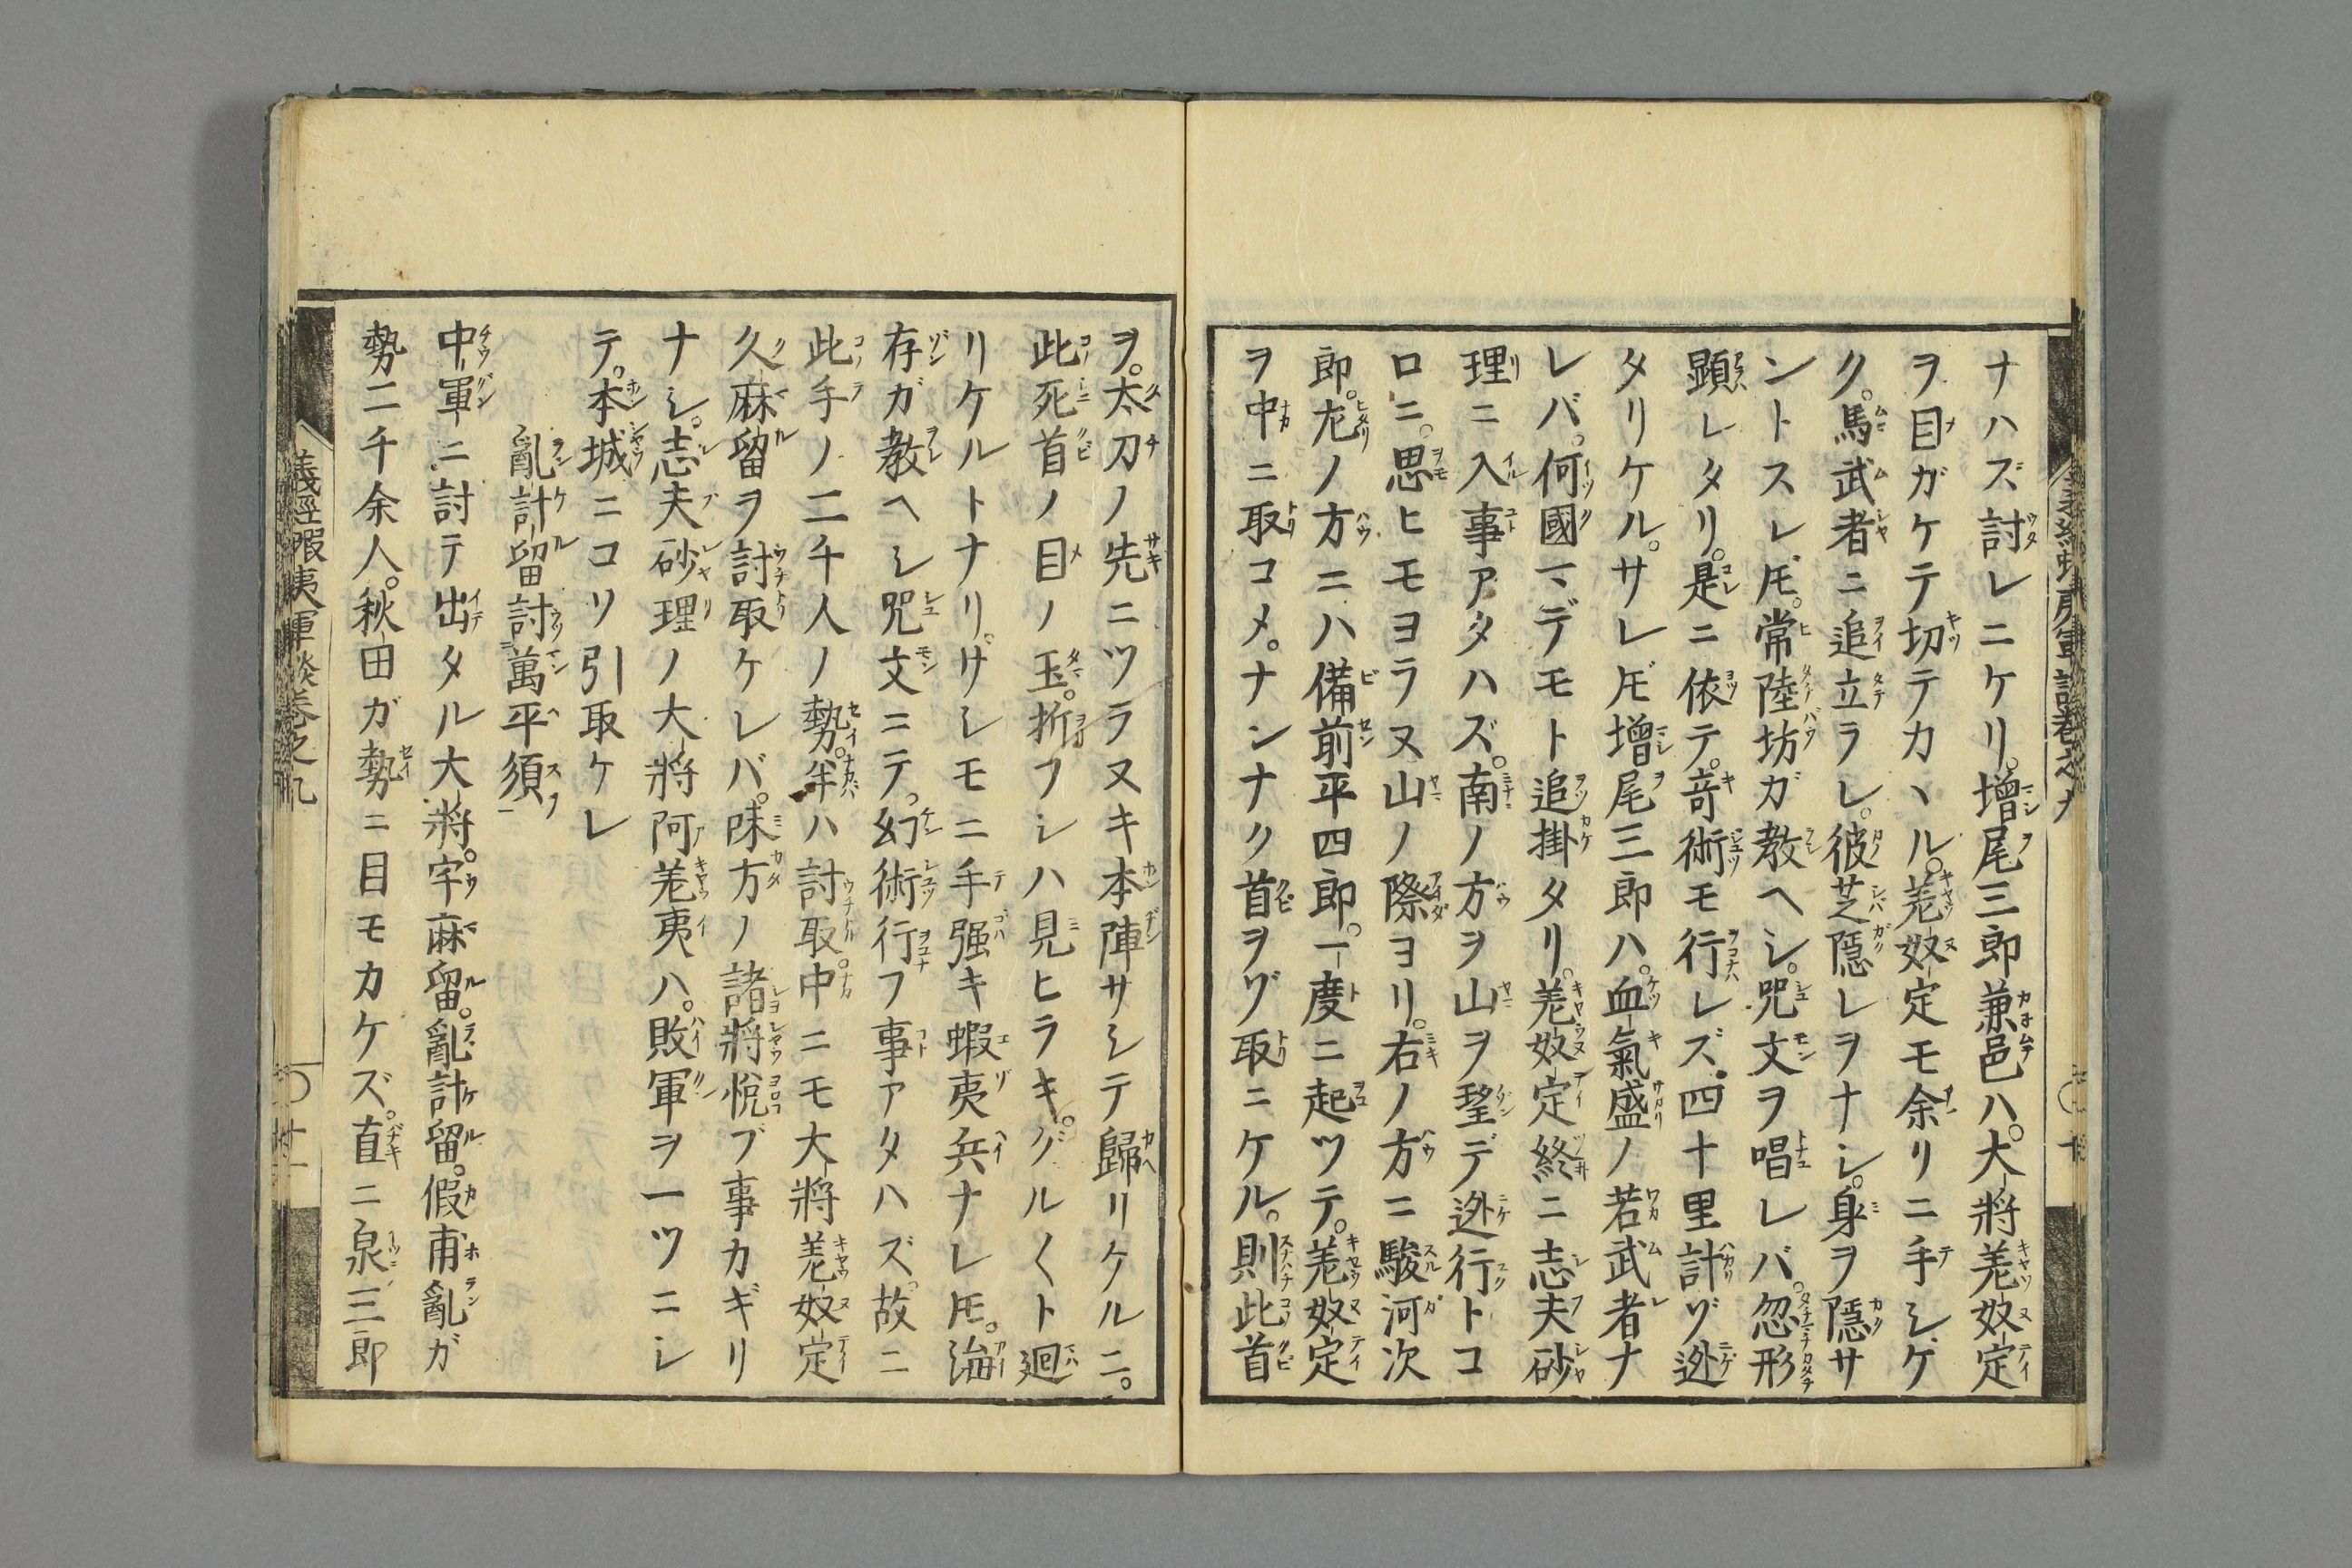 ナハズ討レニケリ。増尾三郎兼邑ハ。大将羗奴定
ヲ目ガケテ切テカヽル。羗奴定モ余リニ手シゲ
ク。馬武者ニ追立ラレ。彼芝隠レヲナシ。身ヲ隠サ
ントスレ𪜈。常陸坊ガ教ヘシ。咒文ヲ唱レバ。忽形
顕レタリ。是ニ依テ。竒術モ行レズ。四十里計ヅ迯
タリケル。サレ𪜈増尾三郎ハ。血氣盛ノ若武者ナ
レバ。何國マデモト追掛タリ。羗奴定終ニ志夫砂
理ニ入事アタハズ。南ノ方ヲ山ヲ望デ迯行トコ
ロニ。思ヒモヨラヌ山ノ際ヨリ。右ノ方ニ駿河次
郎。左ノ方ニハ備前平四郎。一度ニ起ツテ。羗奴定
ヲ中ニ取コメ。ナンナク首ヲゾ取ニケル。則此首
ヲ。太刀ノ先ニツラヌキ本陣サシテ歸リケルニ。
此死首ノ目ノ玉。折フシハ見ヒラキ。グル〱ト廻
リケルトナリ。サシモニ手强キ蝦夷兵ナレ𪜈。海
存ガ教ヘシ咒文ニテ。幻術行フ事アタハズ。故ニ
此手ノ二千人ノ勢。半ハ討取。中ニモ大将羗奴定
久麻留ヲ討取ケレバ。味方ノ諸将悦ブ事カギリ
ナシ。志夫砂理ノ大将阿羗夷ハ。敗軍ヲ一ツニシ
テ。本城ニコソ引取ケレ
亂計留討萬平須一
中軍ニ討テ出タル大将。宇麻留。亂計留。假甫亂ガ
勢二千余人。秋田ガ勢ニ目モカケズ。直ニ泉三郎
義經蝦夷軍談巻之九